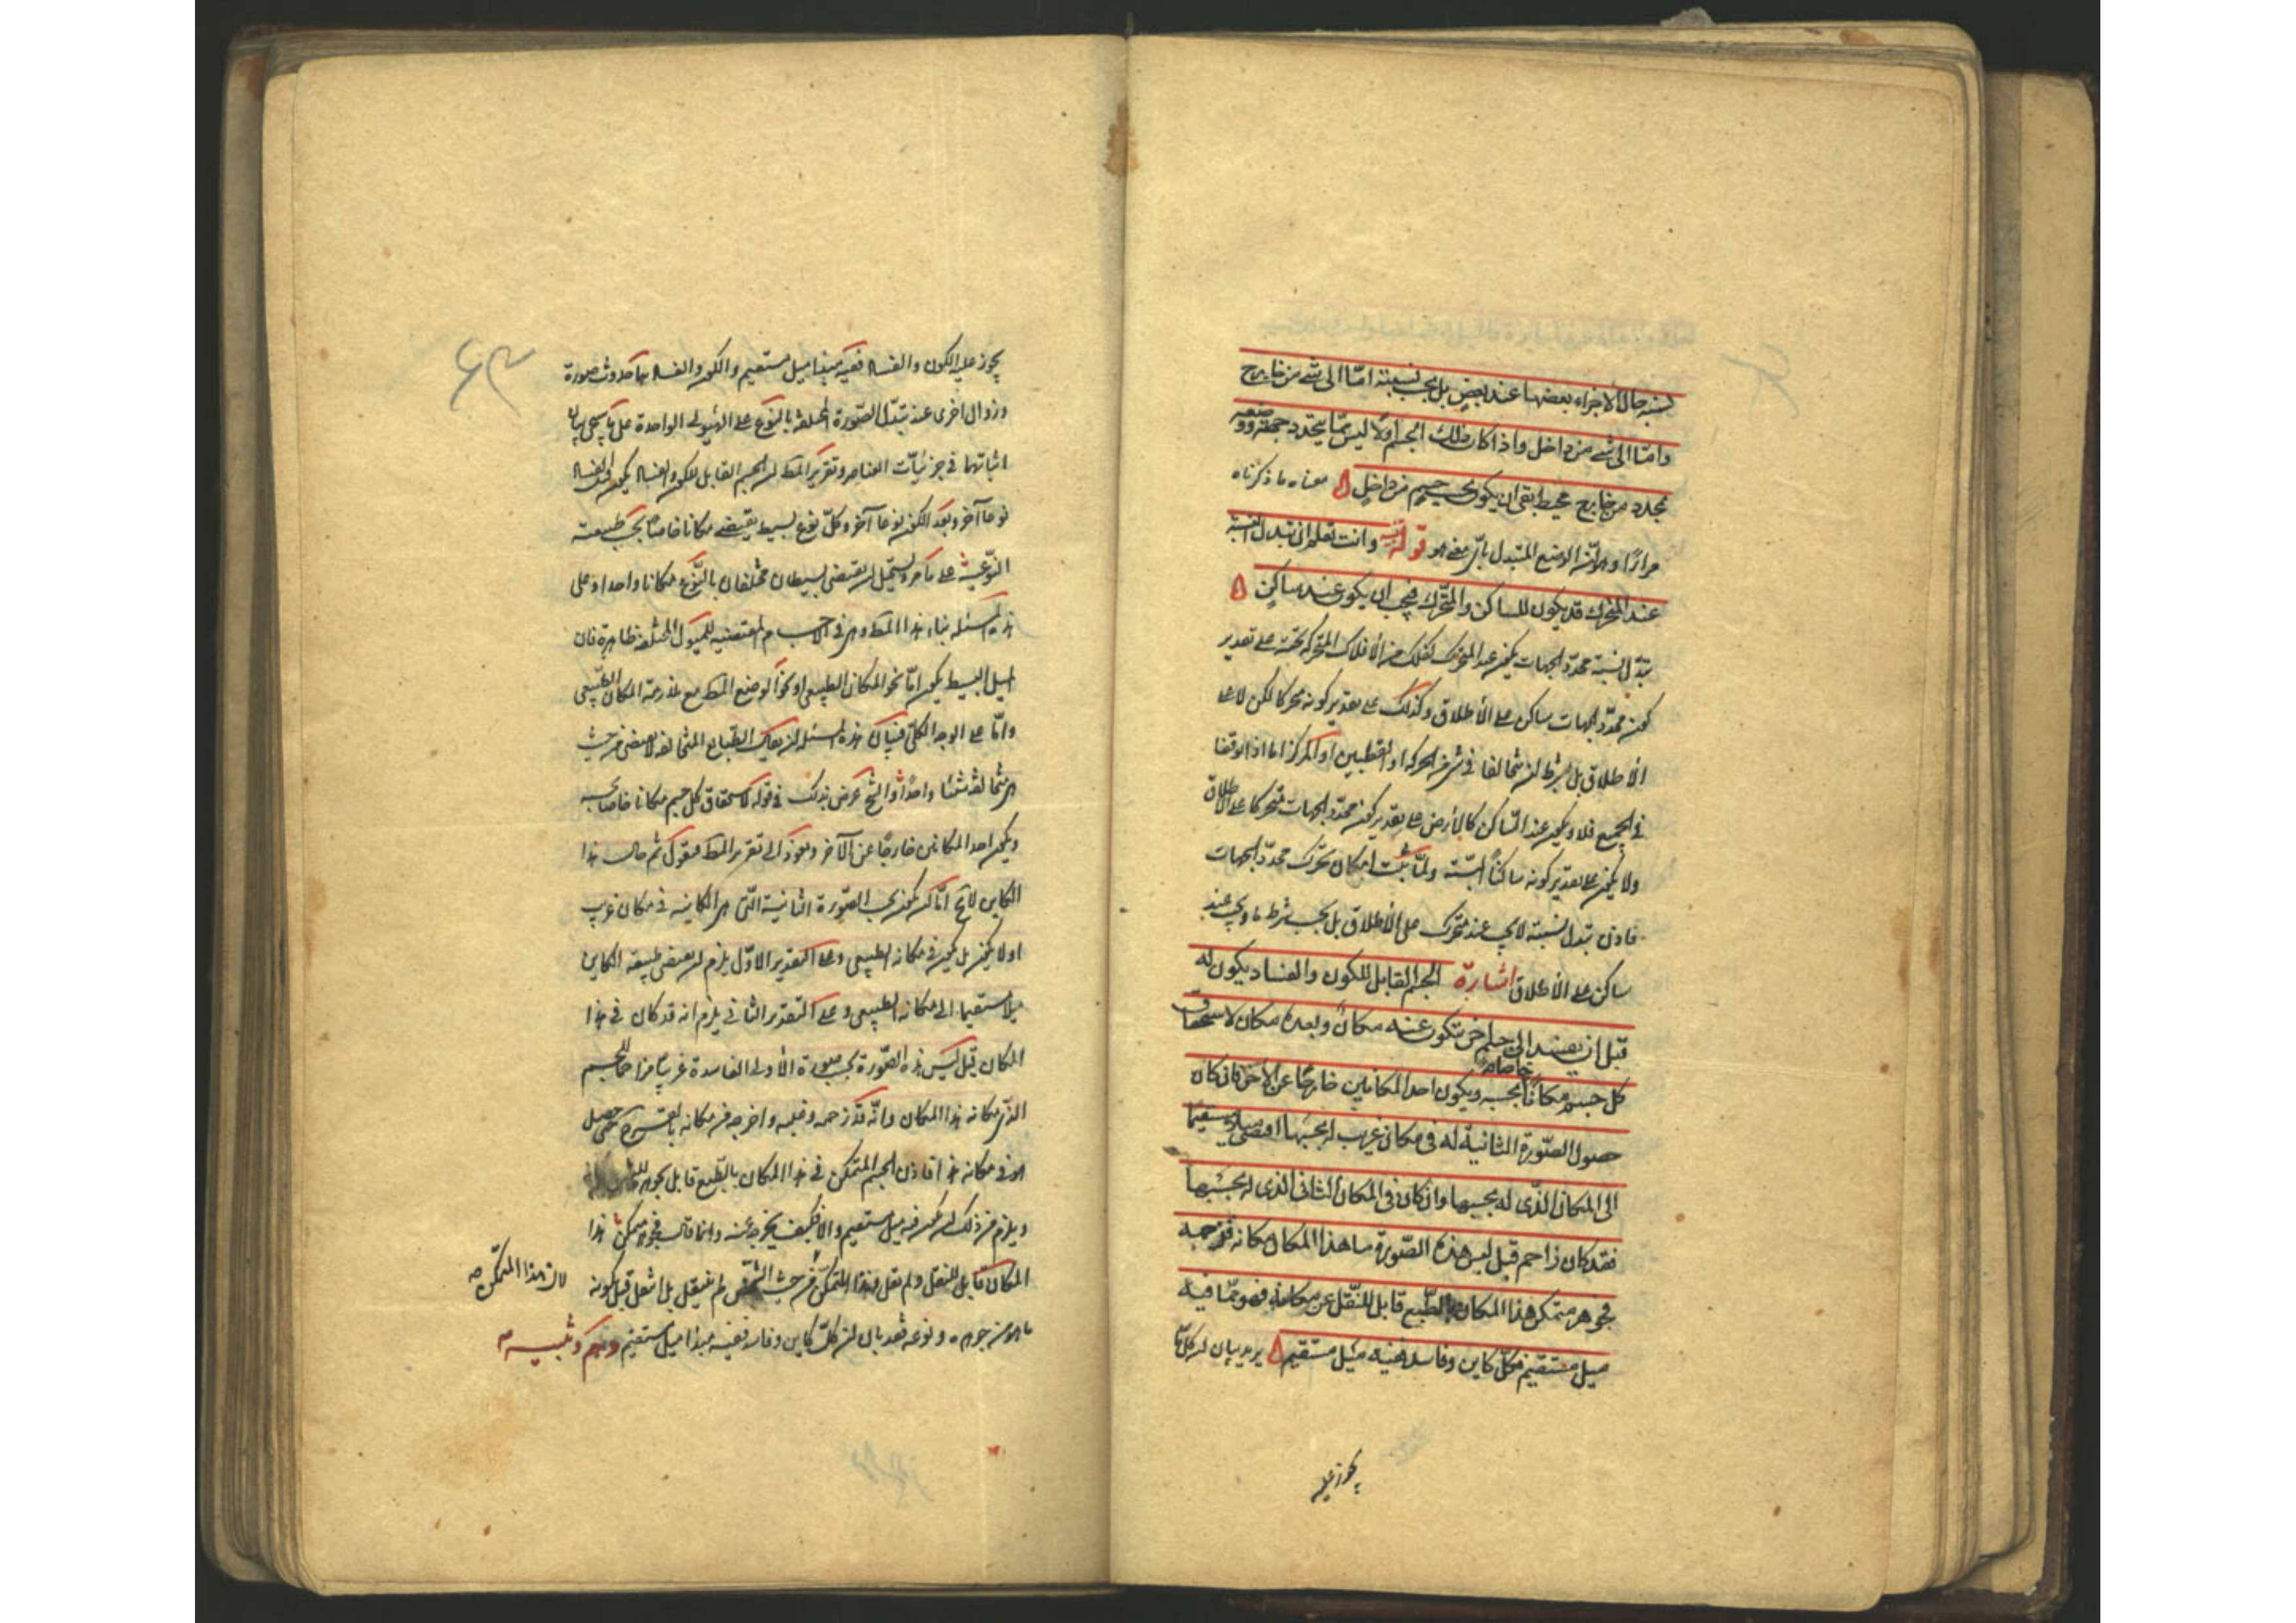 نسبه حال الأجزاء بعضها عند بعض بل بحسب نسبته امّا الى شئ من خارج
وامّا الى شئ من داخل واذا كان ذلك الجسم اولا ليس ممّا يتحدد جهته ووضعه
بمحدد من خارج محيط بقى ان يكون بحسب جسم من داخل ۵ معناه ما ذكرناه
مرارًا وهو انّ الوضع المتبدل باىّ معنى هو قوله تنبيه وانت تعلم ان تبدل النسبة
عند المتحرك قد يكون للساكن والمتحرّك فيجب ان يكون عند ساكن ۵
تبدّل نسبة محدّد الجهات يكون عند المتحرك كفلك من الأفلاك المتحركة تحته على تقدير
كون محدّد الجهات ساكن على الأطلاق وكذلك على تقدير كونه متحركا لكن لا على
الأطلاق بل بشرط ان يتخالفا فى شئ من الحركة او القطبين او المركز اما اذا توافقا
فى الجميع فلا ويكون عند السّاكن كالأرض على تقدير كون محدّد الجهات متحركا على الأطلاق
ولا يكون على تقدير كونه ساكنًا البتّة ولمّا ثبت امكان تحرّك محدّد الجهات
فاذن تبدل نسبته لا يجب عند متحرّك على الأطلاق بل بحسب شرط ما ويجب عند
ساكن على الأطلاق اشارة الجسم القابل للكون والفساد يكون له
قبل ان يفسد الى جسم اخر يتكون عنه مكان وبعده مكان لاستحقاق
كل جسم مكانًا خاصا بحسبه ويكون احد المكانين خارجًا عن الآخر فان كان
حصول الصّورة الثانية له فى مكان غريب له بحسبها اقتضى ميلا مستقيما
الى المكان الذّى له بحسبها وان كان فى المكان الثانى الذى له بحسبها
فقد كان زاحم قبل لبس هذه الصّورة ما هذا المكان مكانه فزحمه
فجوهر متمكن هذا المكان بالطّبع قابل للنّقل عن مكانه فهو ممّا فيه
ميل مستقيم فكلّ كاين وفاسد ففيه ميل مستقيم ۵ يريد بيان ان كل ما
يجوز عليه
يجوز عليه الكون والفساد ففيه مبدا ميل مستقيم والكون والفساد هما حدوث صورة
وزوال اخرى عند تبدّل الصّورة المختلفة بالنوع على الهيولى الواحدة على ما سيجى بيان
اثباتهما فى جزئيّات العناصر وتقرير المط ان الجسم القابل للكون والفساد يكون قبل الفساد
نوعا آخر وبعد الكون نوعا آخر وكلّ نوع بسيط يقتضى مكانا خاصا بحسب طبيعته
النّوعيّة على ما مر ويستحيل ان يقتضى بسيطان مختلفان بالنّوع مكانا واحدا وعلى
هذه المسئله بناء هذا المط وهى فى الأجسام المقتضيه للميول المختلفة ظاهرة فان
الميل البسيط يكون امّا نحو المكان الطبيعى او نحو الوضع المط مع ملازمة المكان الطّبيعى
وامّا على الوجه الكلّى فبيان هذه المسئله ان يقال الطّبايع المتخالفة لا يقتضى من حيث
هى متخالفة شيئًا واحدًا والشيخ عرض بذلك فى قوله لاستحقاق كل جسم مكانا خاصا بحسبه
ويكون احد المكانين خارجًا عن الآخر ونعود الى تقرير المط فنقول ثم حال هذا
الكاين لا يخ امّا ان يكون بحسب الصّورة الثانية الّتى هى الكاينه فى مكان غريب
او لا يكون بل يكون فى مكانه الطبيعى وعلى التقدير الاوّل يلزم ان يقتضى طبيعة الكاين
ميلا مستقيما الى مكانه الطبيعى وعلى التقدير الثانى يلزم انه قد كان فى هذا
المكان قبل لبس هذه الصّورة بحسب صورة الأولى الفاسدة غريبًا مزاحما للجسم
الذّى مكانه هذا المكان وانّه قد زحمه وغلبه واخرجه من مكانه بالقسر حتى حصل
هو فى مكانه هذا فاذن الجسم المتمكن فى هذا المكان بالطّبع قابل بجوهره للنقل عن مكانه
ويلزم من ذلك ان يكون فيه ميل مستقيم والا فكيف يخرج عنه وانما قال فجوهر متمكن هذا
المكان قابل للنقل ولم يقل فهذا المتمكّن من حيث الشخص لم ينتقل بل انتقل قبل كونه
لان هذا المتمكّن صه
ما هو من جوهره ونوعه فقد بان ان كلّ كاين وفاسد ففيه مبدا ميل مستقيم وهم وتنبيه صه